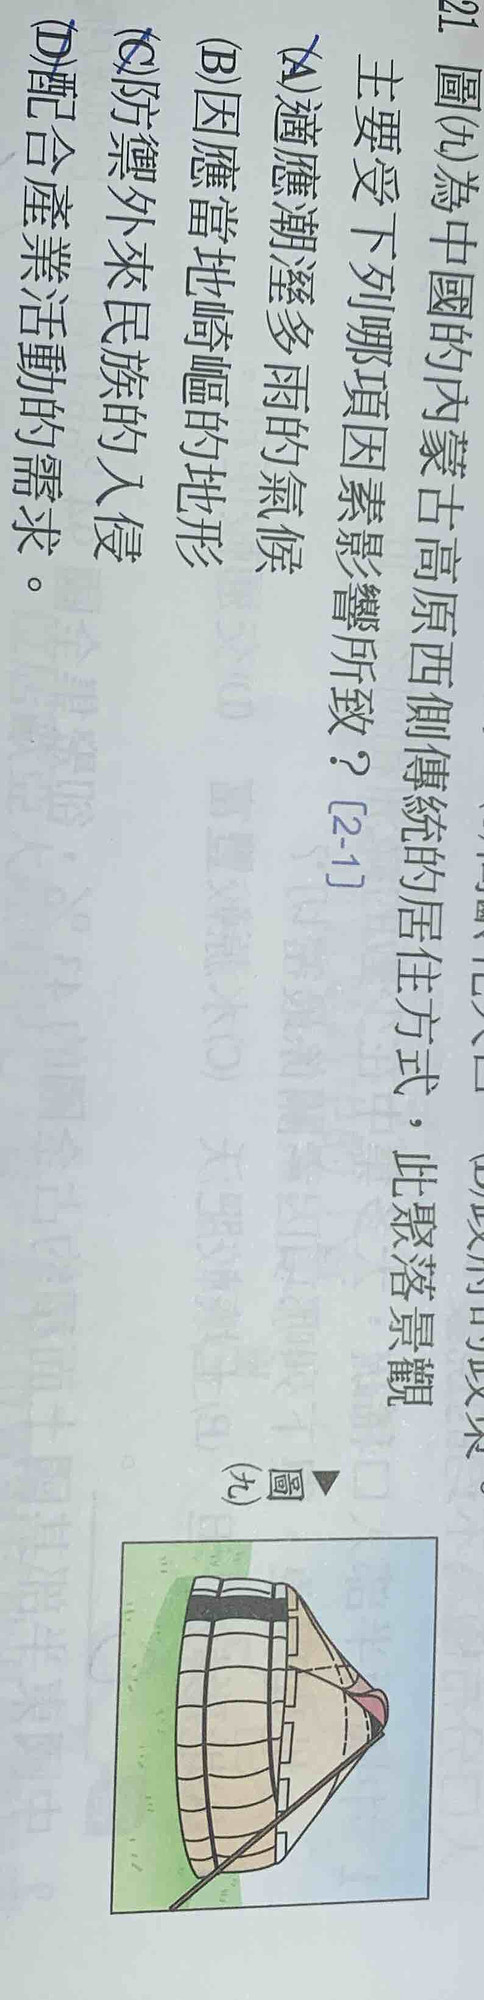 21. 圖㈨為中國的內蒙古高原西側傳統的居住方式，此聚落景觀
主要受下列哪項因素影響所致？〔2-1〕
(A)適應潮溼多雨的氣候
(B)因應當地崎嶇的地形
(C)防禦外來民族的入侵
(D)配合產業活動的需求。
▲圖㈨